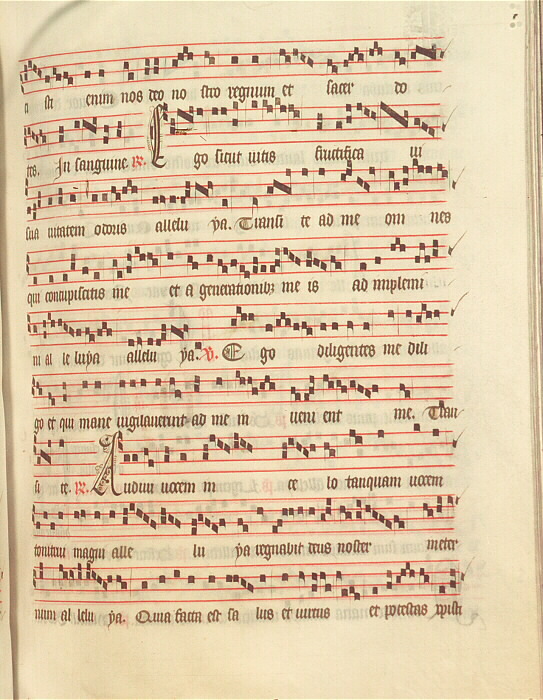 a sti enim nos deo no stro regnum et sacer do
tes. In sanguine. R. Ego sicut uitis fructifica ui
sua uitatem odoris allelu ya. Transi te ad me om nes
qui concupiscitis me et a generationibz me is ad implemi
ni al le luya allelu ya. V. Ego diligentes me dili
go et qui mane uigilauerint ad me in ueni ent me. Tran
si te. R. Audiui uocem in ce lo tanquam uocem
tonitrui magni alle lu ya regnabit deus noster in eter
num al lelu ya. Quia facta est sa lus et uirtus et potestas xpisti